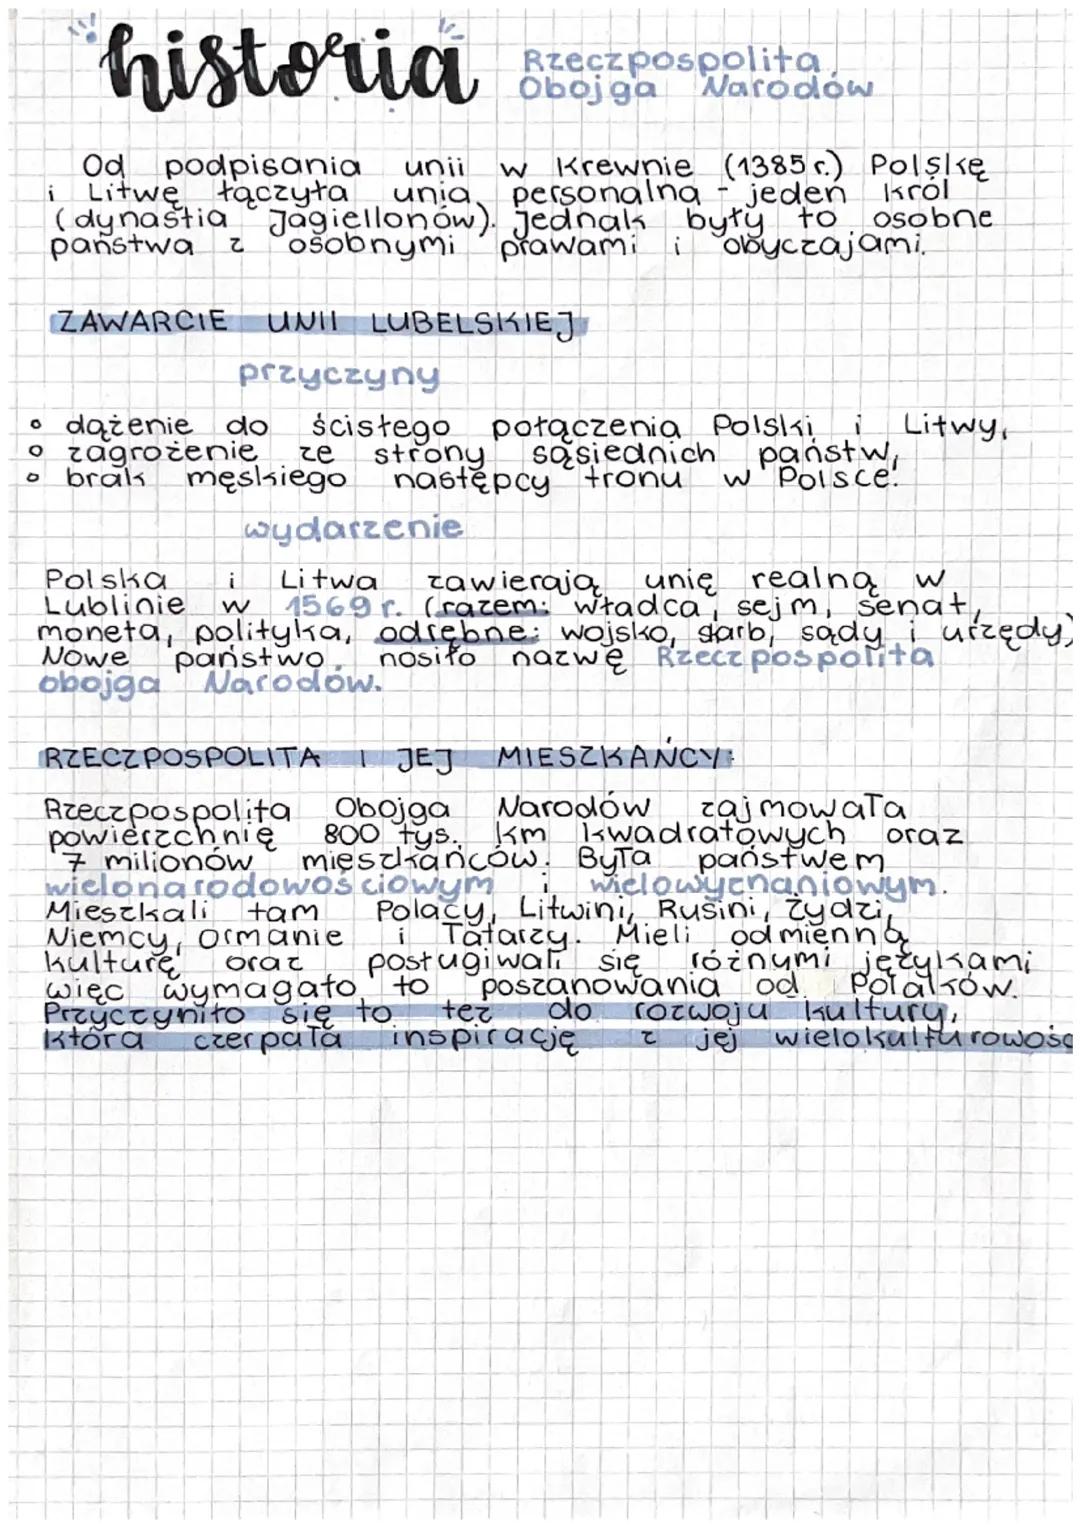 historia
Rzeczpospolita
Obojga Narodów
Od podpisania unii w Krewnie (1385 r.) Polskę
i Litwę łączyła unia personalna - jeden król
(dynastia Jagiellonów). Jednak były to osobne
państwa z osobnymi prawami i obyczajami.
ZAWARCIE UNII LUBELSKIEJ
przyczyny
• dążenie do ścisłego połączenia Polski i Litwy,
• zagrożenie ze strony sąsiednich państw,
• brak męskiego następcy tronu w Polsce.
wydarzenie
Polska i Litwa zawierają unię realną w
Lublinie w 1569 r. (razem: władca, sejm, senat,
moneta, polityka, odrębne: wojsko, skarb, sądy i urzędy)
Nowe państwo nosiło nazwę Rzeczpospolita
obojga Narodów.
RZECZPOSPOLITA I JEJ MIESZKAŃCY:
Rzeczpospolita Obojga Narodów zajmowała
powierzchnię 800 tys. km kwadratowych oraz
7 milionów mieszkańców. Była państwem
wielonarodowościowym i wielowyznaniowym.
Mieszkali tam Polacy, Litwini, Rusini, Żydzi,
Niemcy, Ormanie i Tatarzy. Mieli odmienną
kulturę oraz posługiwali się różnymi językami
więc wymagało to poszanowania od Polaków.
Przyczyniło się to też do rozwoju kultury,
która czerpała inspirację z jej wielokulturowośc